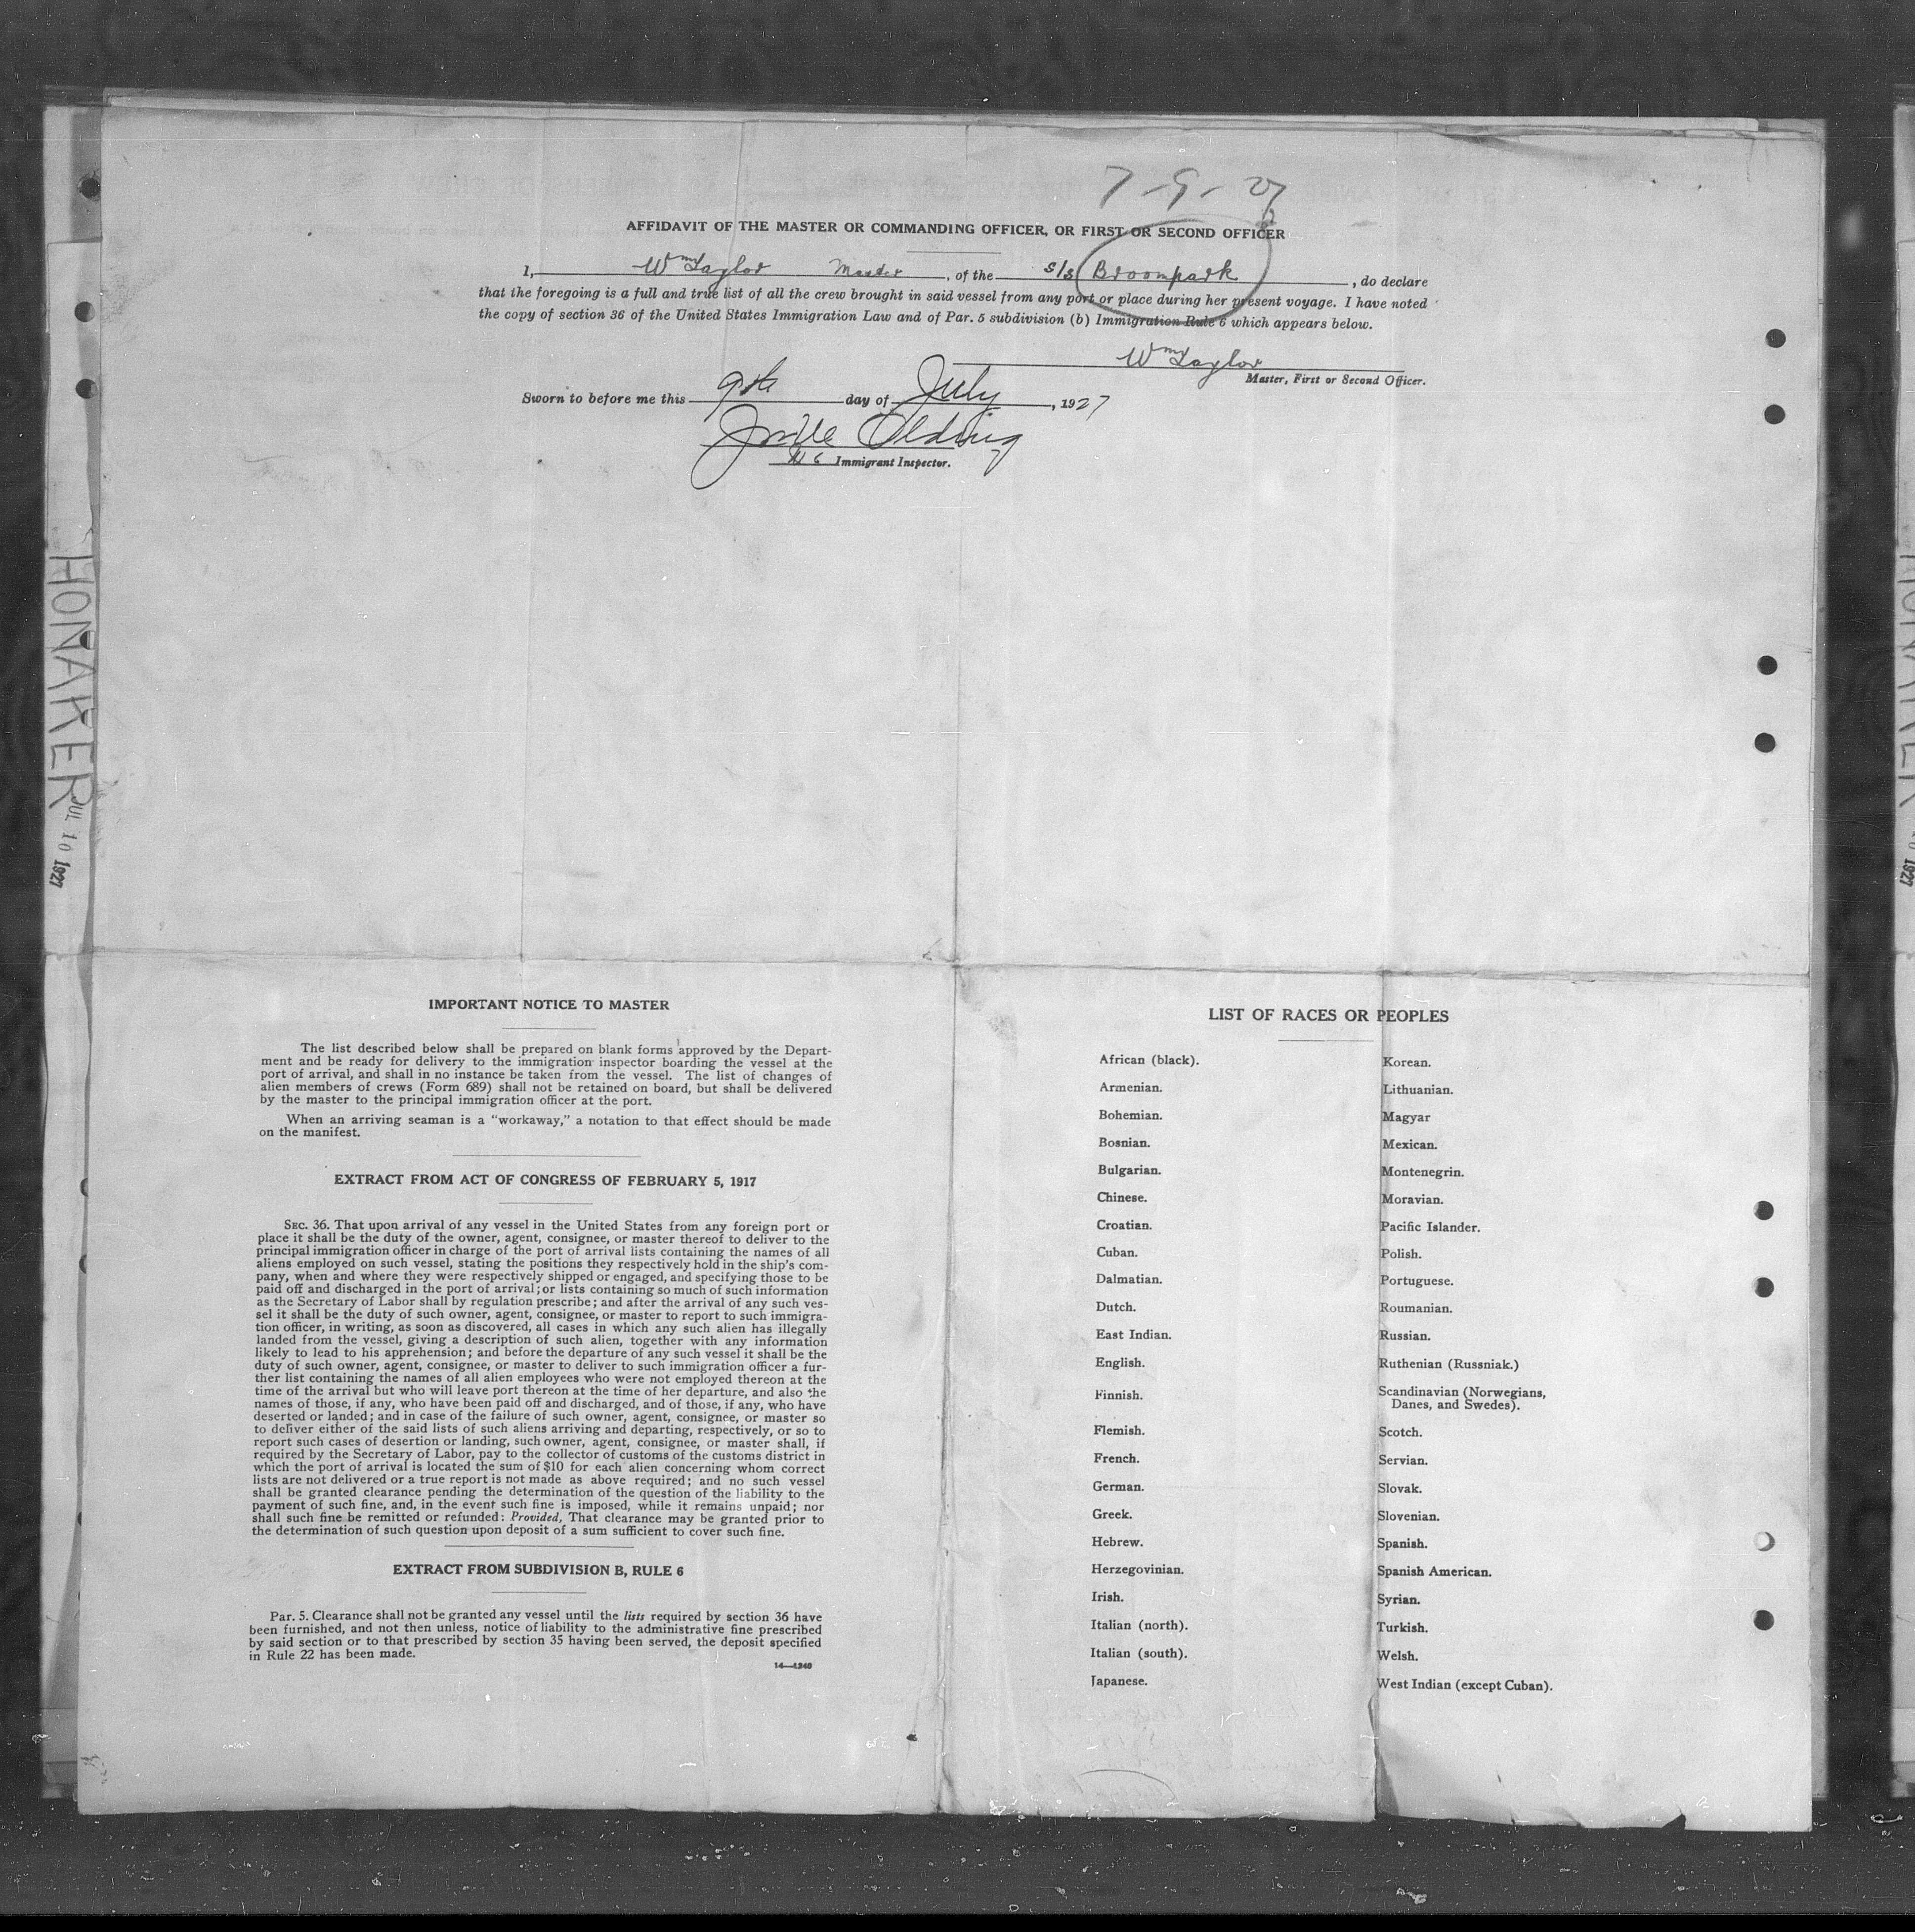 7-9-27
AFFIDAVIT OF THE MASTER OR COMMANDING OFFICER, OR FIRST OR SECOND OFFICER
I, Wm Taylor Master, of the s/s Broompark, do declare
that the foregoing is a full and true list of all the crew brought in said vessel from any port or place during her present voyage. I have noted
the copy of section 36 of the United States Immigration Law and of Par. 5 subdivision (b) Immigration Rule 6 which appears below.
Wm Taylor
Master, First or Second Officer.
Sworn to before me this 9th day of July, 1927
Olding
Immigrant Inspector.
HONAKER
JUL 10 1927
IMPORTANT NOTICE TO MASTER
The list described below shall be prepared on blank forms approved by the Depart-
ment and be ready for delivery to the immigration inspector boarding the vessel at the
port of arrival, and shall in no instance be taken from the vessel. The list of changes of
alien members of crews (Form 689) shall not be retained on board, but shall be delivered
by the master to the principal immigration officer at the port.
When an arriving seaman is a "workaway," a notation to that effect should be made
on the manifest.
EXTRACT FROM ACT OF CONGRESS OF FEBRUARY 5, 1917
SEC. 36. That upon arrival of any vessel in the United States from any foreign port or
place it shall be the duty of the owner, agent, consignee, or master thereof to deliver to the
principal immigration officer in charge of the port of arrival lists containing the names of all
aliens employed on such vessel, stating the positions they respectively hold in the ship's com-
pany, when and where they were respectively shipped or engaged, and specifying those to be
paid off and discharged in the port of arrival; or lists containing so much of such information
as the Secretary of Labor shall by regulation prescribe; and after the arrival of any such ves-
sel it shall be the duty of such owner, agent, consignee, or master to report to such immigra-
tion officer, in writing, as soon as discovered, all cases in which any such alien has illegally
landed from the vessel, giving a description of such alien, together with any information
likely to lead to his apprehension; and before the departure of any such vessel it shall be the
duty of such owner, agent, consignee, or master to deliver to such immigration officer a fur-
ther list containing the names of all alien employees who were not employed thereon at the
time of the arrival but who will leave port thereon at the time of her departure, and also the
names of those, if any, who have been paid off and discharged, and of those, if any, who have
deserted or landed; and in case of the failure of such owner, agent, consignee, or master so
to deliver either of the said lists of such aliens arriving and departing, respectively, or so to
report such cases of desertion or landing, such owner, agent, consignee, or master shall, if
required by the Secretary of Labor, pay to the collector of customs of the customs district in
which the port of arrival is located the sum of $10 for each alien concerning whom correct
lists are not delivered or a true report is not made as above required; and no such vessel
shall be granted clearance pending the determination of the question of the liability to the
payment of such fine, and, in the event such fine is imposed, while it remains unpaid; nor
shall such fine be remitted or refunded: Provided, That clearance may be granted prior to
the determination of such question upon deposit of a sum sufficient to cover such fine.
EXTRACT FROM SUBDIVISION B, RULE 6
Par. 5. Clearance shall not be granted any vessel until the lists required by section 36 have
been furnished, and not then unless, notice of liability to the administrative fine prescribed
by said section or to that prescribed by section 35 having been served, the deposit specified
in Rule 22 has been made.
14—1240
LIST OF RACES OR PEOPLES
African (black).
Armenian.
Bohemian.
Bosnian.
Bulgarian.
Chinese.
Croatian.
Cuban.
Dalmatian.
Dutch.
East Indian.
English.
Finnish.
Flemish.
French.
German.
Greek.
Hebrew.
Herzegovinian.
Irish.
Italian (north).
Italian (south).
Japanese.
Korean.
Lithuanian.
Magyar
Mexican.
Montenegrin.
Moravian.
Pacific Islander.
Polish.
Portuguese.
Roumanian.
Russian.
Ruthenian (Russniak.)
Scandinavian (Norwegians,
Danes, and Swedes).
Scotch.
Servian.
Slovak.
Slovenian.
Spanish.
Spanish American.
Syrian.
Turkish.
Welsh.
West Indian (except Cuban).